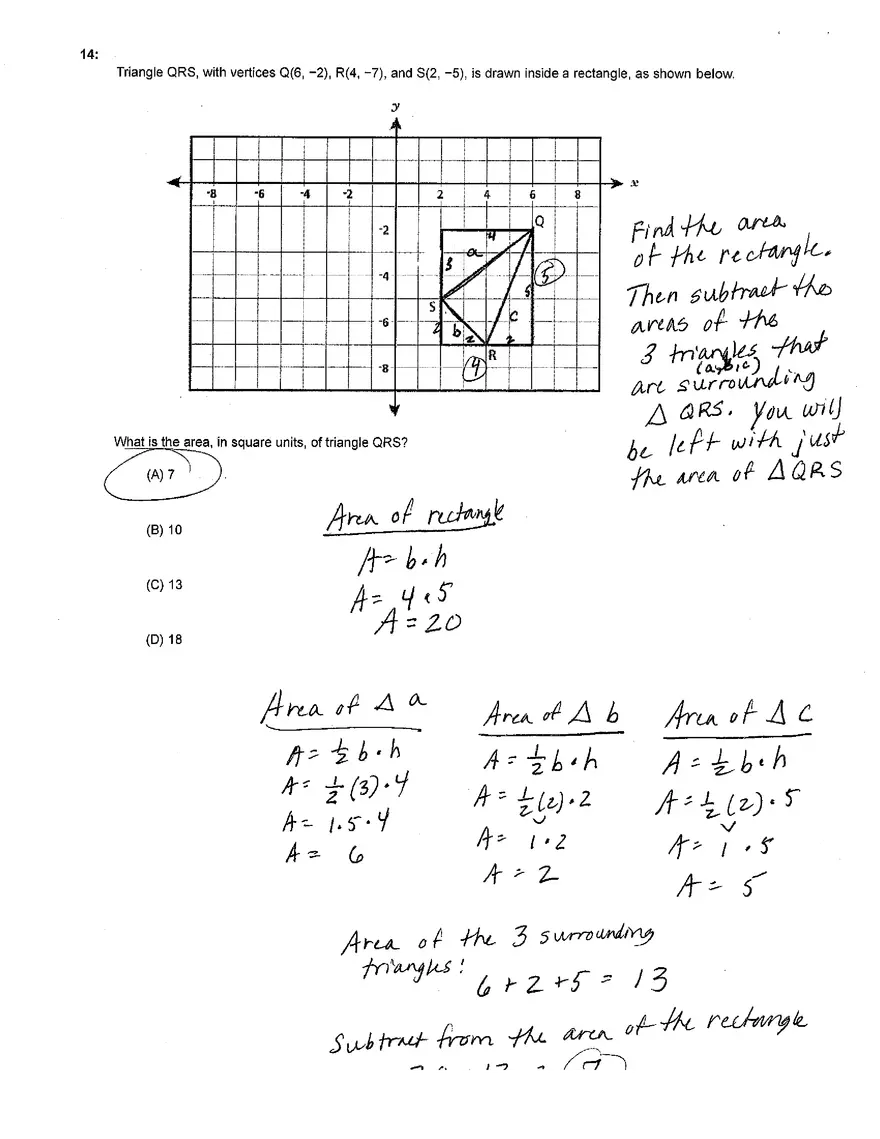 14:
Triangle QRS, with vertices Q(6, −2), R(4, −7), and S(2, −5), is drawn inside a rectangle, as shown below.
y
x
-8 -6 -4 -2 2 4 6 8
-2
-4
-6
-8
Q
4
a
3
5
5
S
2
b
2
c
2
R
4
Find the area
of the rectangle.
Then subtract the
areas of the
3 triangles that
(a,b,c)
are surrounding
△ QRS. You will
be left with just
the area of △QRS
What is the area, in square units, of triangle QRS?
(A) 7
(B) 10
(C) 13
(D) 18
Area of rectangle
A = b·h
A = 4·5
A = 20
Area of △ a
A = 1/2 b·h
A = 1/2 (3)·4
A = 1.5·4
A = 6
Area of △ b
A = 1/2 b·h
A = 1/2 (2)·2
A = 1·2
A = 2
Area of △ C
A = 1/2 b·h
A = 1/2 (2)·5
A = 1·5
A = 5
Area of the 3 surrounding
triangles:
6 + 2 + 5 = 13
Subtract from the area of the rectangle